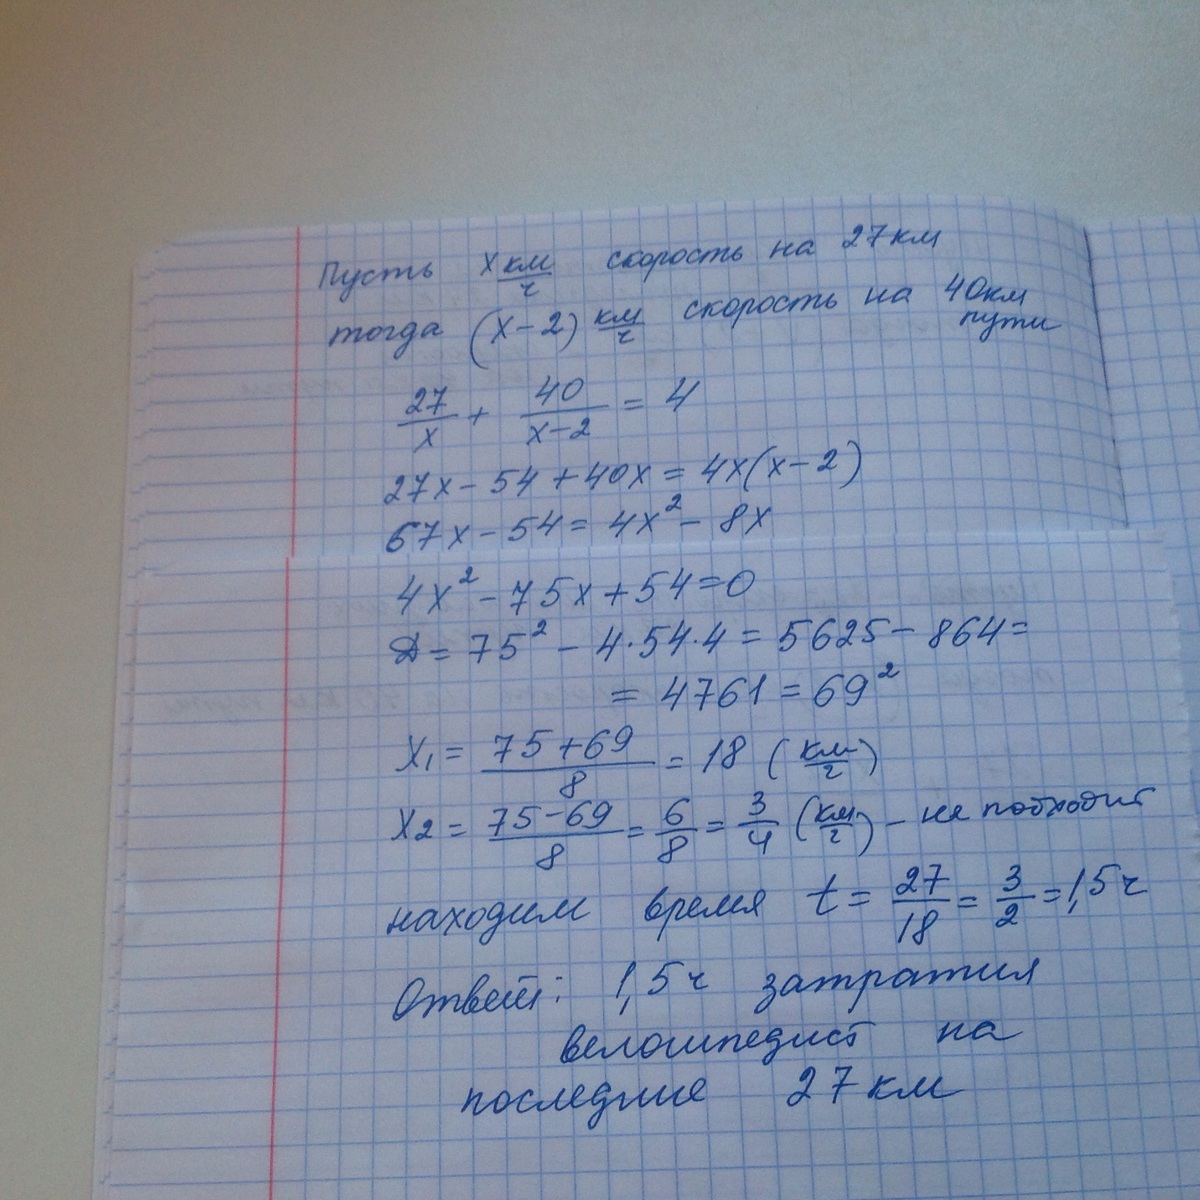 Пусть x км/ч скорость на 27 км
тогда (x-2) км/ч скорость на 40 км пути
27/x + 40/(x-2) = 4
27x - 54 + 40x = 4x(x-2)
67x - 54 = 4x² - 8x
4x² - 75x + 54 = 0
Д = 75² - 4·54·4 = 5625 - 864 =
= 4761 = 69²
x₁ = (75+69)/8 = 18 (км/ч)
x₂ = (75-69)/8 = 6/8 = 3/4 (км/ч) - не подходит
находим время t = 27/18 = 3/2 = 1,5 ч
Ответ: 1,5 ч затратил
велосипедист на
последние 27 км